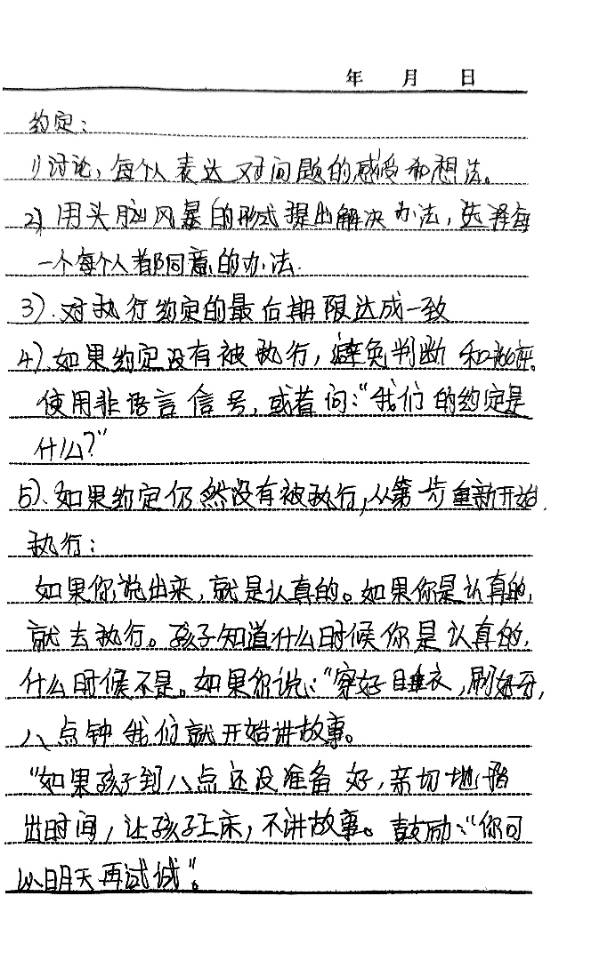 年 月 日
约定：
1)讨论，每个人表达对问题的感受和想法。
2)用头脑风暴的形式提出解决办法，选择每
一个每个人都同意的办法.
3).对执行约定的最后期限达成一致
4).如果约定没有被执行，避免判断和批评。
使用非语言信号，或者问："我们的约定是
什么?"
5).如果约定仍然没有被执行,从第一步重新开始.
执行：
如果你说出来，就是认真的。如果你是认真的，
就去执行。孩子知道什么时候你是认真的，
什么时候不是。如果你说："穿好睡衣，刷好牙，
八点钟我们就开始讲故事。
"如果孩子到八点还没准备好，亲切地指
出时间，让孩子上床，不讲故事。鼓励："你可
以明天再试试"。